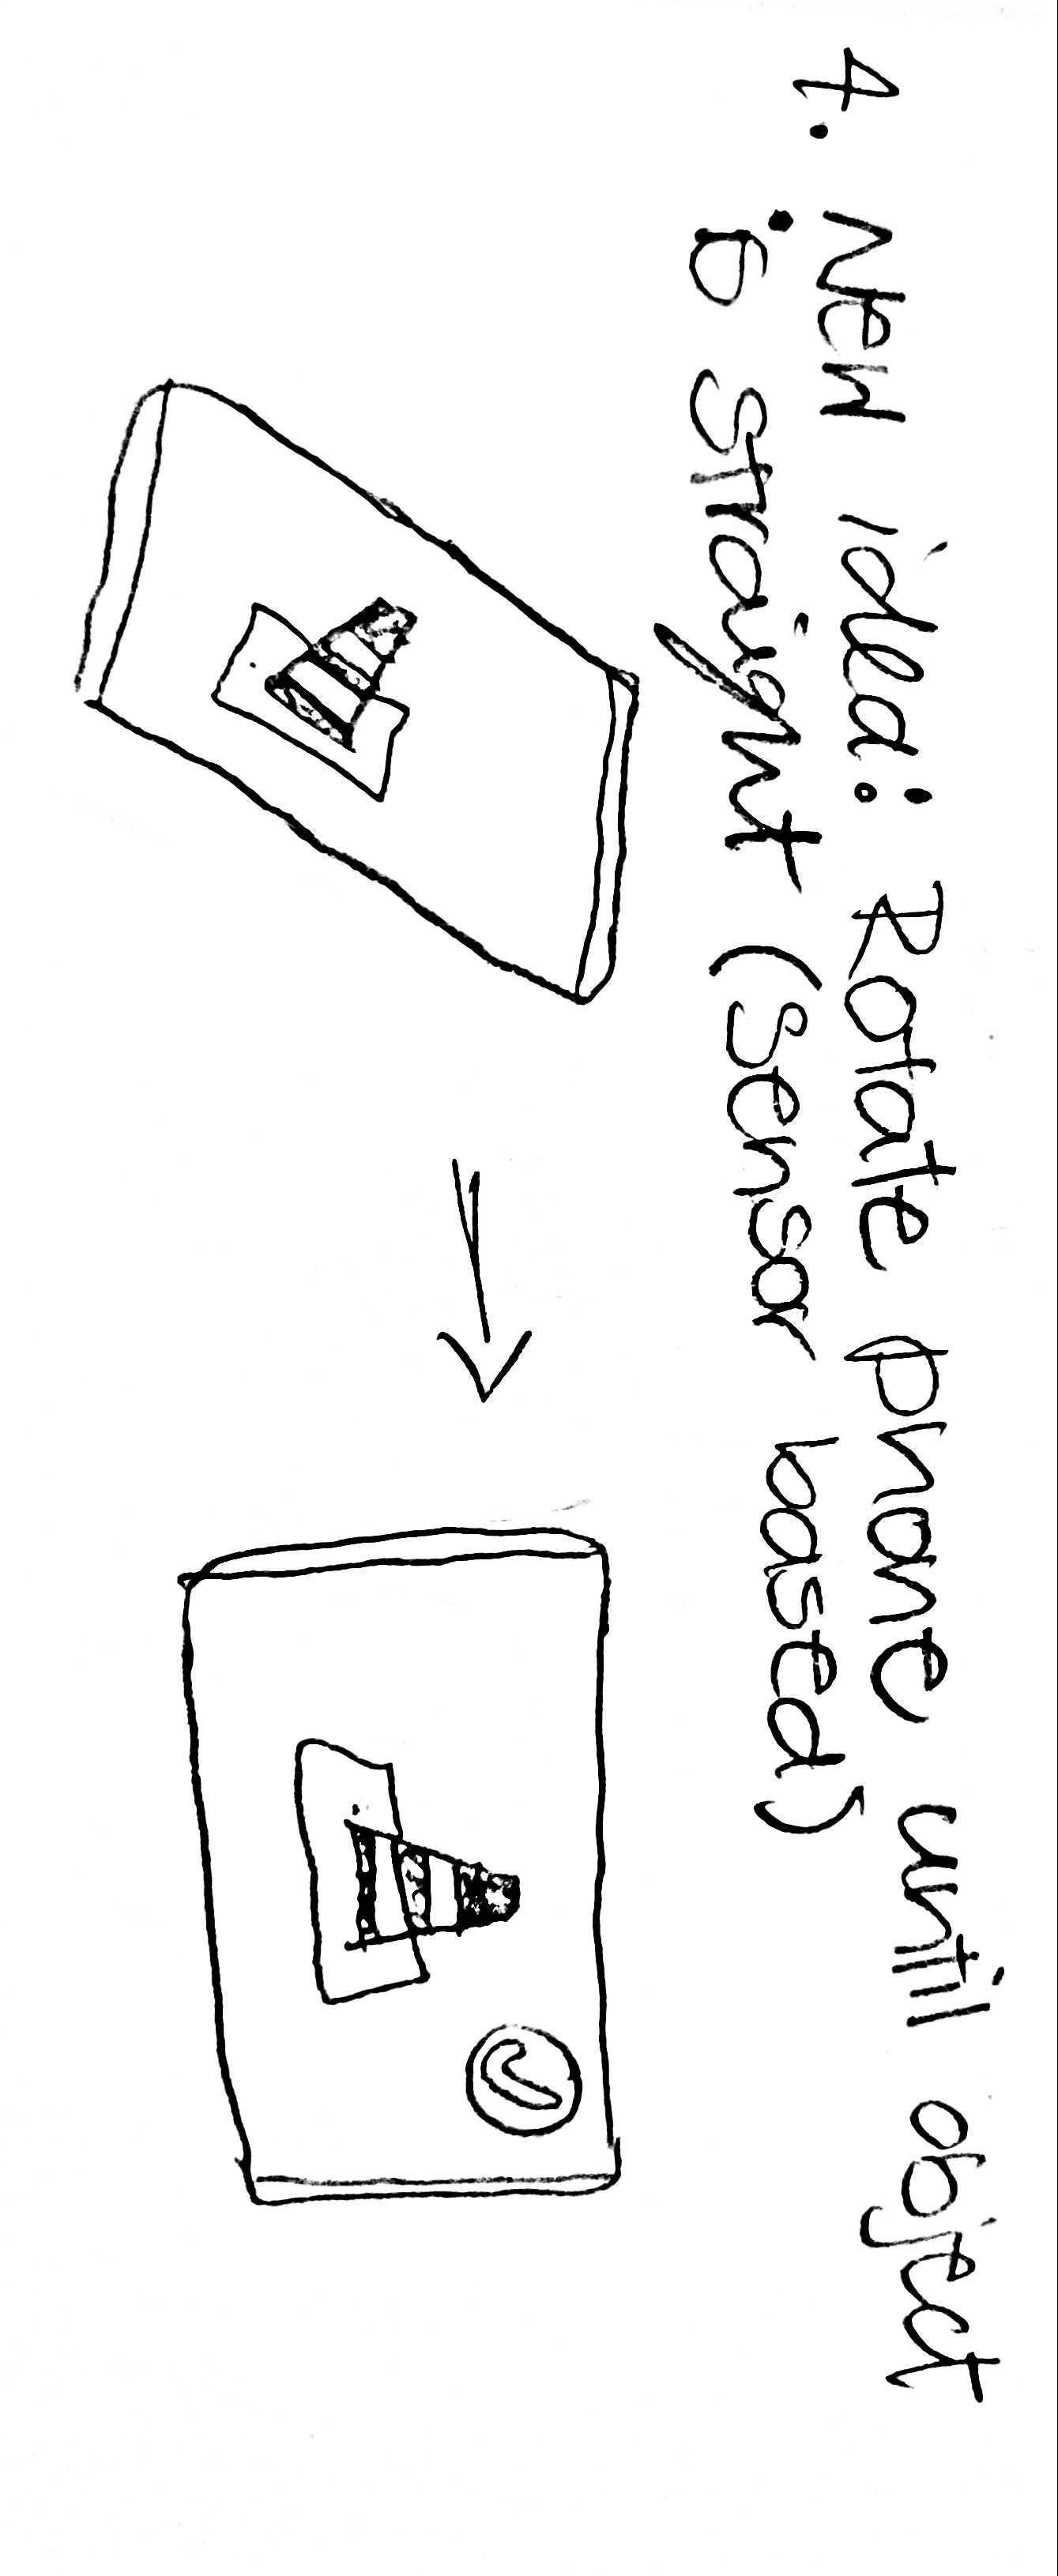 4. New idea: Rotate phone until object
is straight (sensor based)